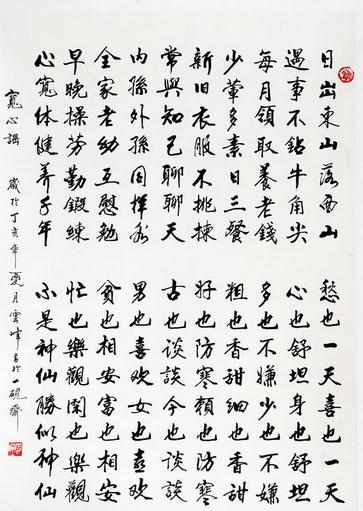 日出東山落西山 愁也一天喜也一天
遇事不鉆牛角尖 心也舒坦身也舒坦
每月領取養老錢 多也不嫌少也不嫌
少葷多素日三餐 粗也香甜細也香甜
新旧衣服不挑揀 好也防寒頼也防寒
常與知己聊聊天 古也談談今也談談
内孫外孫同 男也喜欢女也喜欢
全家老幼互慰勉 貧也相安富也相安
早晚操劳勤鍛練 忙也樂觀閑也樂觀
心寬体健養千年 不是神仙勝似神仙
寬心謡 歲於丁亥年夏月雲峰書於一硯齋